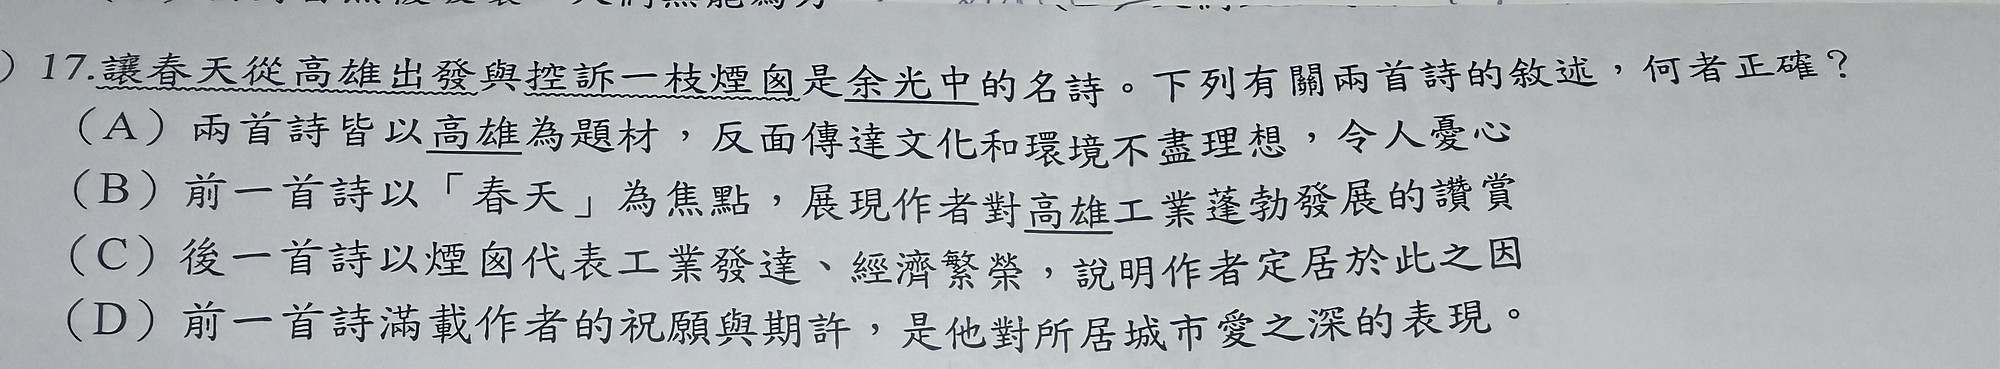 ）17.讓春天從高雄出發與控訴一枝煙囪是余光中的名詩。下列有關兩首詩的敘述，何者正確？
（A）兩首詩皆以高雄為題材，反面傳達文化和環境不盡理想，令人憂心
（B）前一首詩以「春天」為焦點，展現作者對高雄工業蓬勃發展的讚賞
（C）後一首詩以煙囪代表工業發達、經濟繁榮，說明作者定居於此之因
（D）前一首詩滿載作者的祝願與期許，是他對所居城市愛之深的表現。